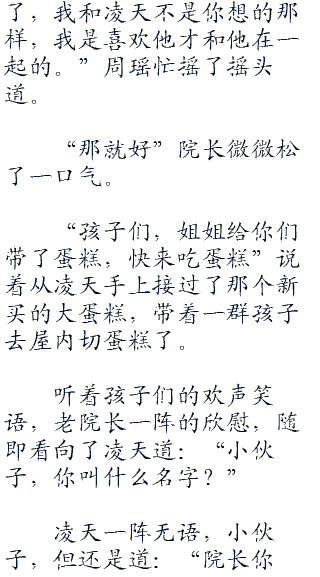 了，我和凌天不是你想的那
样，我是喜欢他才和他在一
起的。”周瑶忙摇了摇头
道。
“那就好”院长微微松
了一口气。
“孩子们，姐姐给你们
带了蛋糕，快来吃蛋糕”说
着从凌天手上接过了那个新
买的大蛋糕，带着一群孩子
去屋内切蛋糕了。
听着孩子们的欢声笑
语，老院长一阵的欣慰，随
即看向了凌天道：“小伙
子，你叫什么名字？”
凌天一阵无语，小伙
子，但还是道：“院长你